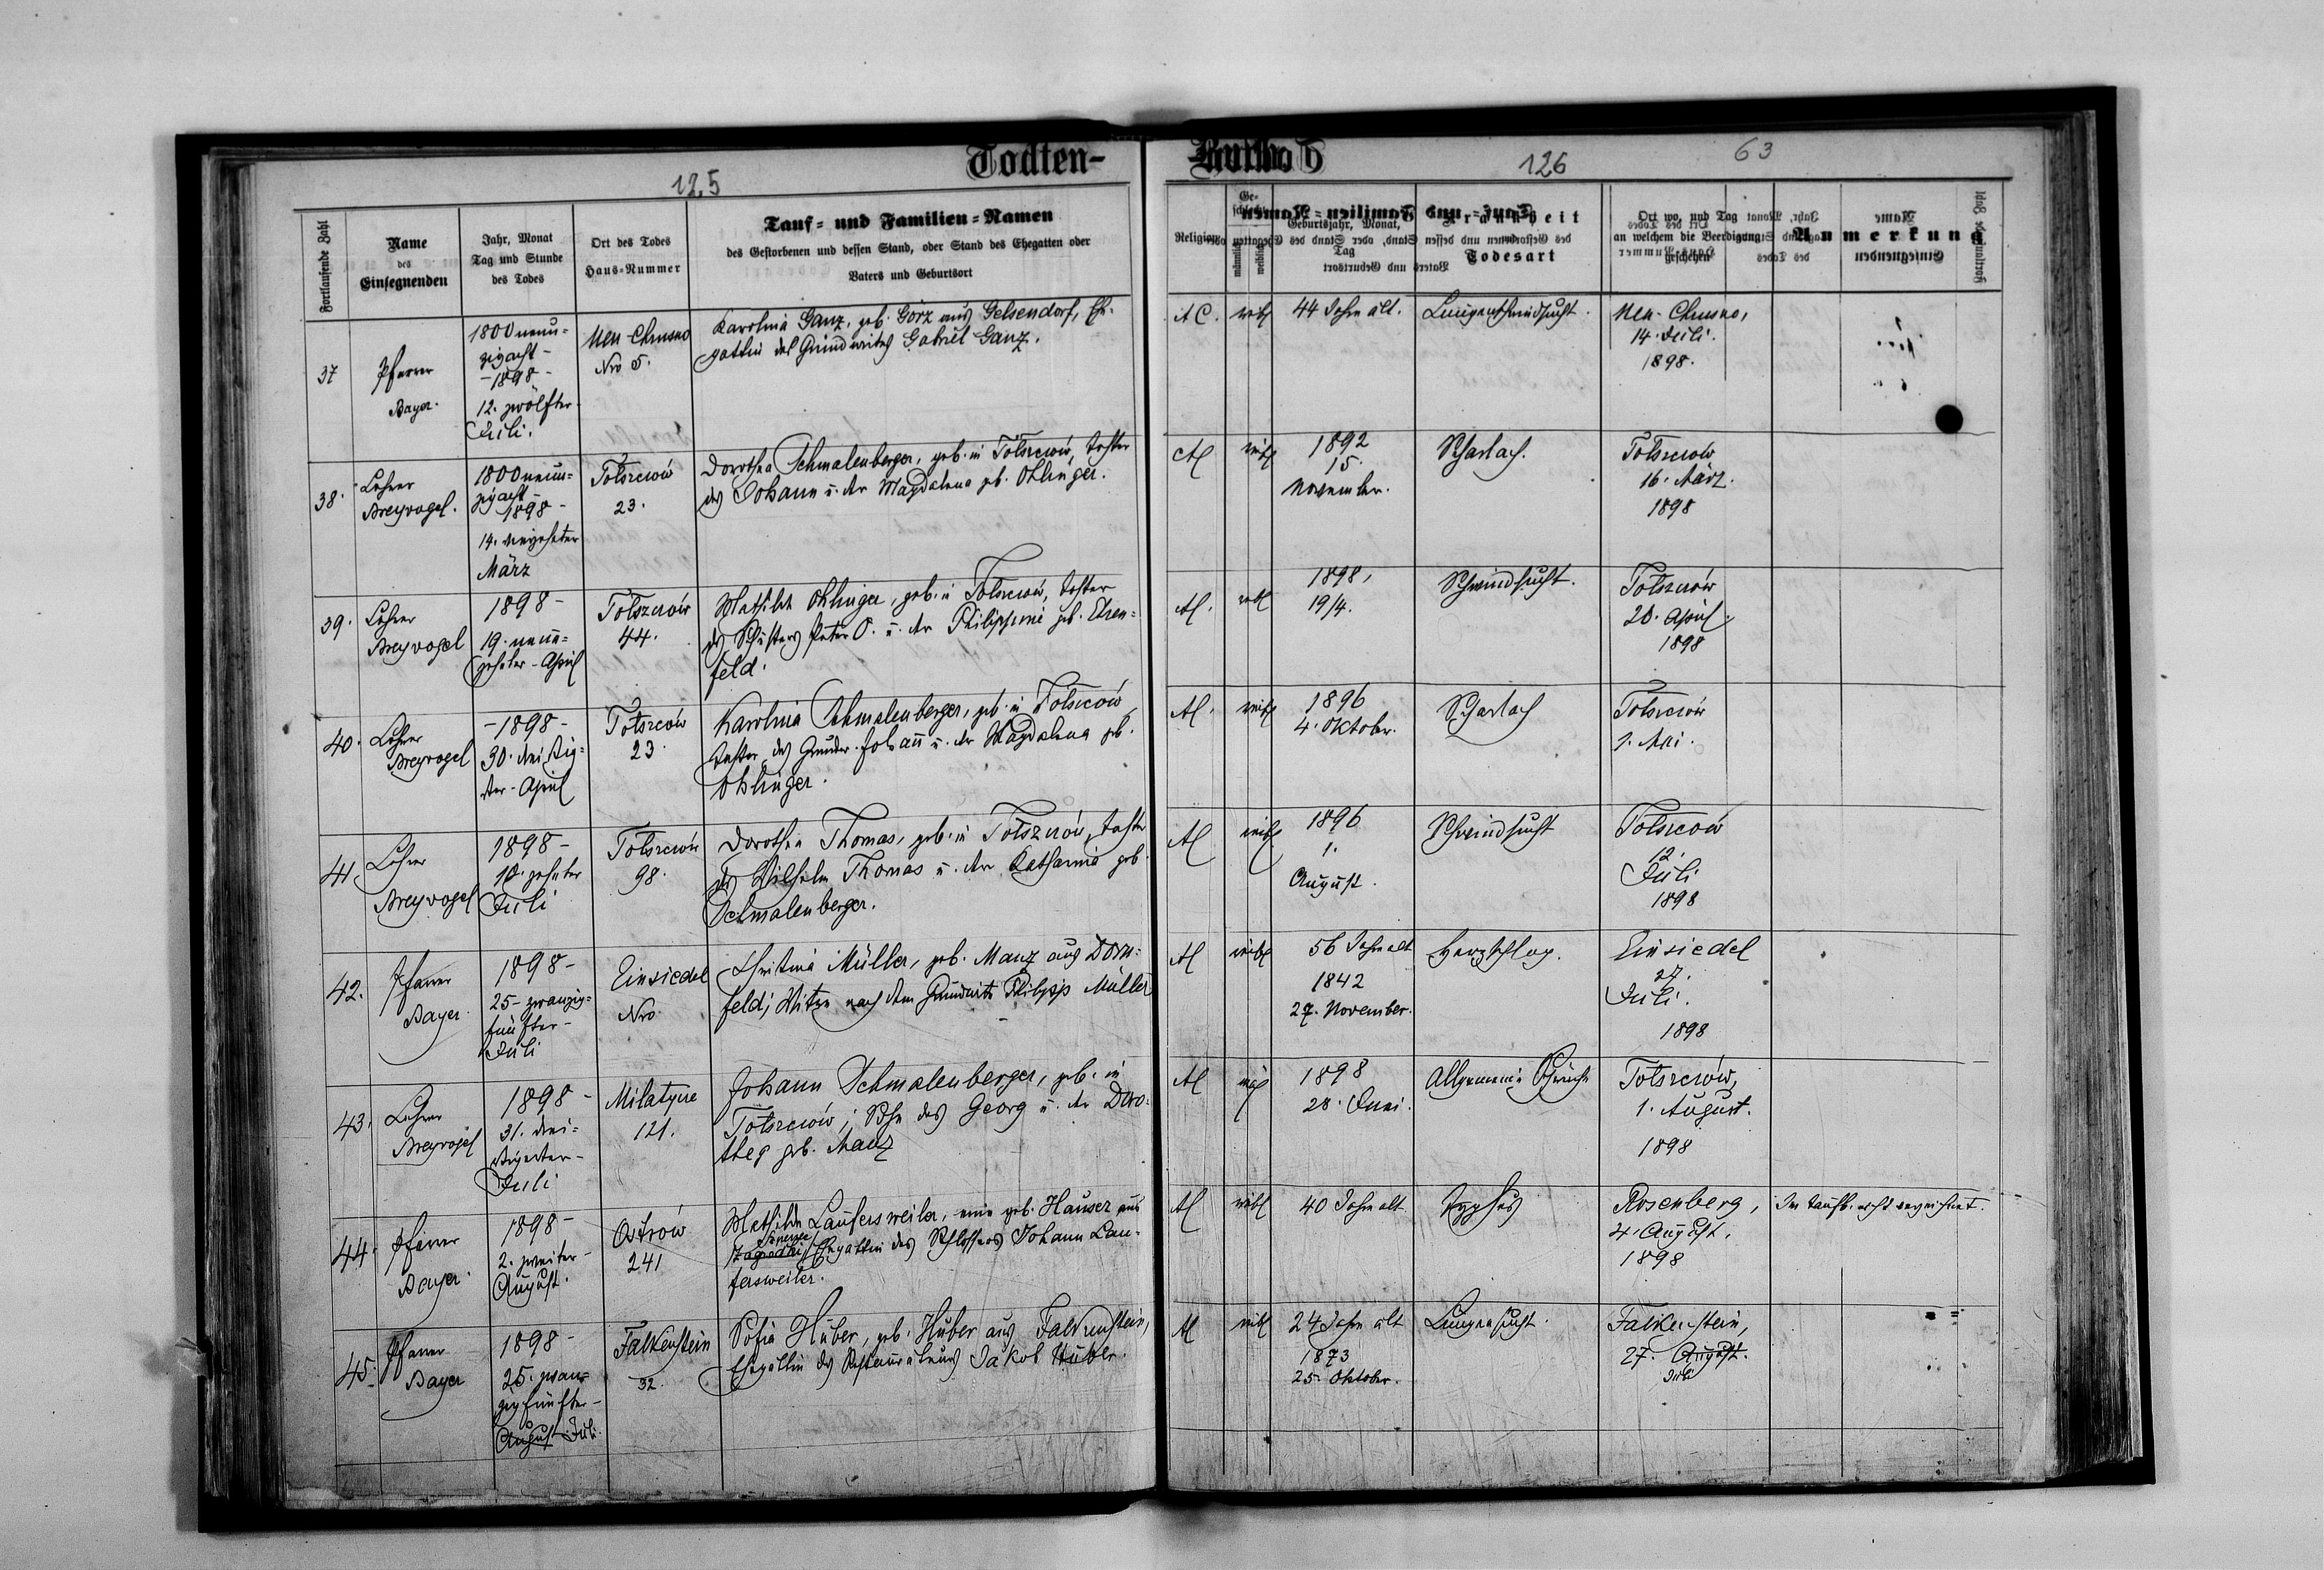 Todten-
125
126
63
Fortlaufende Zahl
Name
des
Einsegnenden
Jahr, Monat
Tag und Stunde
des Todes
Ort des Todes
Haus-Nummer
Tauf- und Familien-Namen
des Gestorbenen und dessen Stand, oder Stand des Ehegatten oder
Vaters und Geburtsort
Religion
männlich
weiblich
Geburtsjahr, Monat,
Tag
Krankheit
Todesart
Ort wo, und Tag
an welchem die Beerdigung
geschehen
Anmerkung
37
Pfarrer
Bayer.
1800 neun-
zigacht-
-1898-
12. zwölfter
Juli.
Neu-Chrusno
Nro 5.
Karolina Ganz, geb. Görz aus Gelsendorf, Ehe-
gattin des Grundwirtes Gabriel Ganz.
AC.
weibl
44 Jahre alt.
Lungenschwindsucht.
Neu-Chrusno,
14. Juli.
1898.
38.
Lehrer
Breyvogel.
1800 neun-
zigacht-
1898-
14. vierzehnter
März
Tołszczów
23.
Dorothea Schmalenberger, geb. in Tołszczów, Tochter
des Johann u. der Magdalena geb. Ohlinger.
A
weibl
1892
15.
November.
Scharlach.
Tołszczów
16. März.
1898
39.
Lehrer
Breyvogel
1898-
19. neun-
zehnter-April
Tołszczów
44.
Mathilde Ohlinger, geb. in Tołszczów, Tochter
des Schusters Peter O. u. der Philippine geb. Ehren-
feld.
A.
weibl
1898,
19/4.
Schwindsucht.
Tołszczów
20. April.
1898
40.
Lehrer
Breyvogel
-1898-
30. dreißig-
ster-April
Tołszczów
23.
Karolina Schmalenberger, geb. in Tołszczów,
Tochter des Grundw. Johann u. der Magdalena geb.
Ohlinger.
A.
weibl
1896
4. Oktober.
Scharlach
Tołszczów
1. Mai.
41.
Lehrer
Breyvogel
1898-
10. zehnter
Juli
Tołszczów
98.
Dorothea Thomas, geb. in Tołszczów, Tochter
des Wilhelm Thomas u. der Katharina geb.
Schmalenberger.
A
weibl
1896
1.
August.
Schwindsucht
Tołszczów
12.
Juli
1898
42.
Pfarrer
Bayer.
1898-
25-zwanzig-
fünfter-
Juli
Einsiedel
Nro.
Christina Müller, geb. Manz aus Dorn-
feld; Witwe nach dem Grundwirte Philipp Müller
A
weibl
56 Jahre alt
1842
27. November.
Herzschlag.
Einsiedel
27.
Juli.
1898
43.
Lehrer
Breyvogel
1898-
31. drei-
ßigster-
Juli
Milatycze
121.
Johann Schmalenberger, geb. in
Tołszczów; Sohn des Georg u. der Doro-
thea geb. Manz
A
1898
28. Juni.
Allgemeine Schwäche
Tołszczów,
1. August.
1898
44.
Pfarrer
Bayer.
1898-
2. zweiter-
August.
Ostrów
241
Mathilde Laufersweiler, eine geb. Hauser aus
Ehegattin des Schlossers Johann Lau-
fersweiler.
A
weibl
40 Jahre alt
Typhus
Rosenberg,
4. August.
1898
Im Taufb. nicht verzeichnet.
45.
Pfarrer
Bayer
1898-
25. zwan-
zigfünfter-
August Juli.
Falkenstein
32.
Sofia Huber, geb. Huber aus Falkenstein,
Ehegattin des Restaurateurs Jakob Huber.
A
weibl
24 Jahre alt
1873
25. Oktober.
Lungensucht.
Falkenstein,
27. August.
Juli